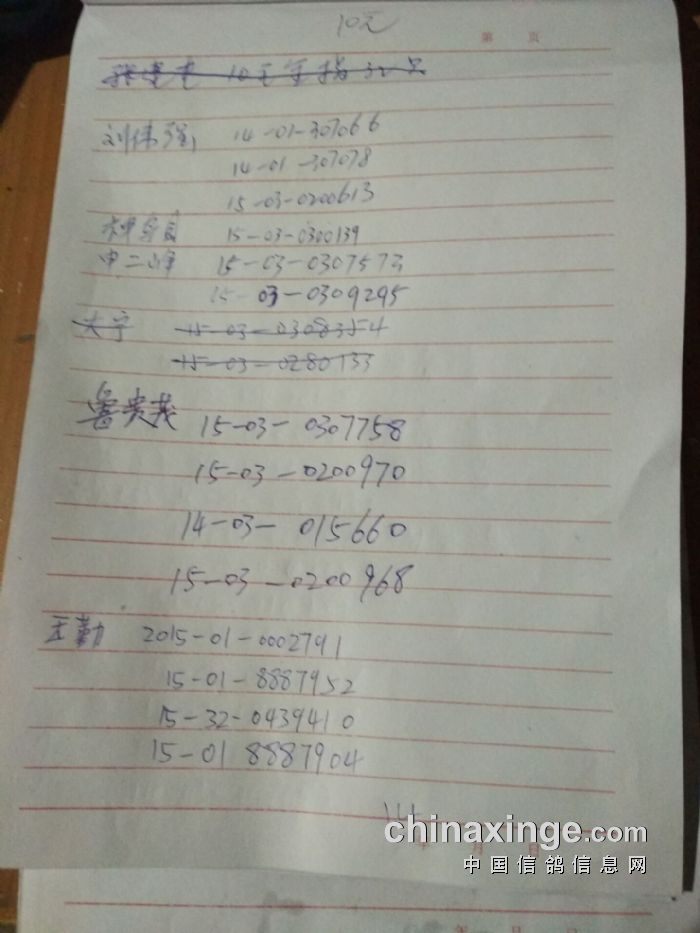 10元
第 页
刘伟强 14-01-307066
14-01-307078
15-03-0200613
15-03-0300139
申二峰 15-03-0307573
15-03-0309295
大宁 15-03-0308354
15-03-0280133
鲁贵茂 15-03-0307758
15-03-0200970
14-03-015660
15-03-0200968
王勤 2015-01-0002791
15-01-8887952
15-32-0439410
15-01 8887904
chinaxinge.com
年 月 日
中国信鸽信息网